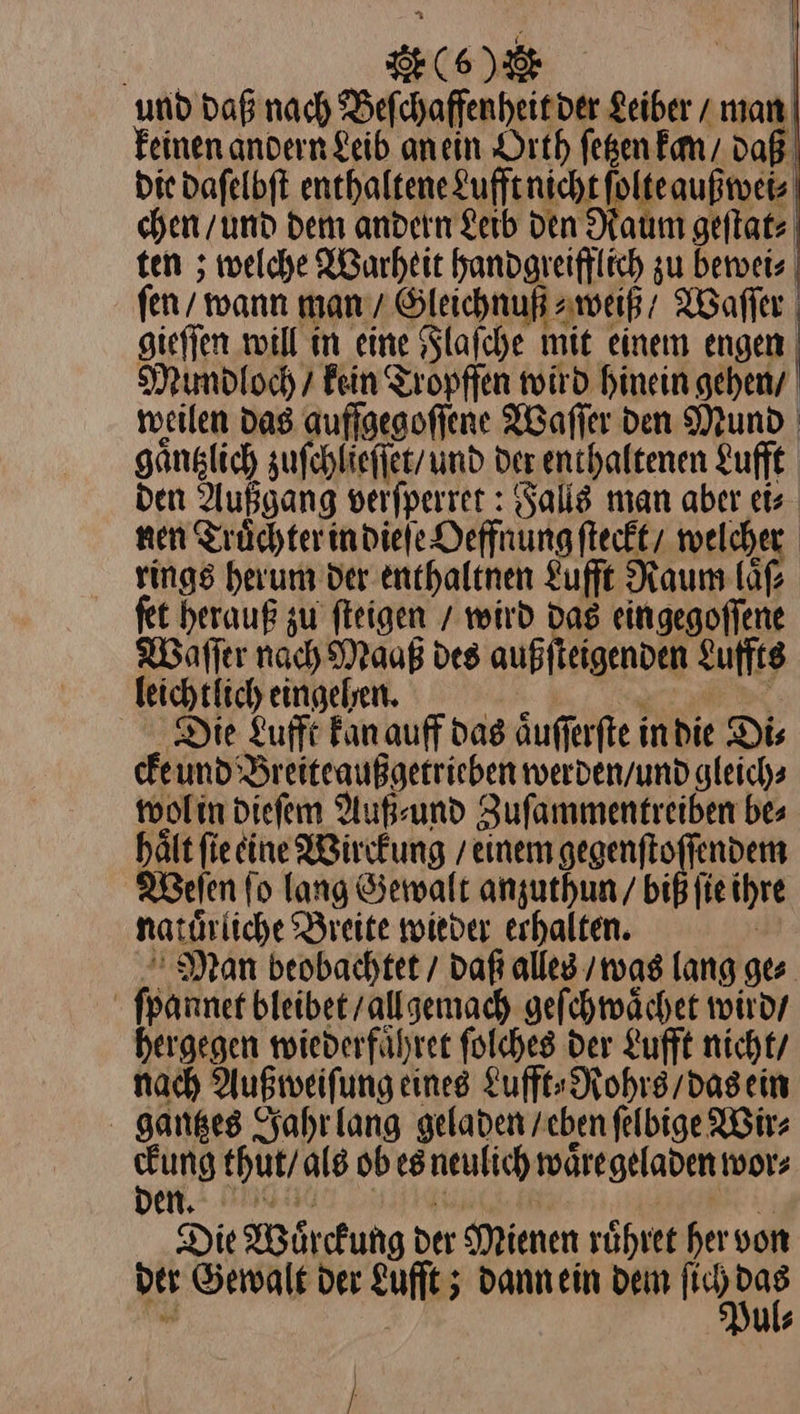 (6)
und daß nach Beſchaffenheit der Leiber / man
keinen andern Leib an ein Orth ſetzen kan / daß
die daſelbſt enthaltene Lufft nicht ſolte außwei⸗
chen / und dem andern Leib den Raum geſtat⸗
ten ; welche Warheit handgreifflich zu bewei⸗
ſen / wann man / Gleichnuß⸗weiß / Waſſer
gieſſen will in eine Flaſche mit einem engen
Mundloch / kein Tropffen wird hinein gehen /
weilen das auffgegoſſene Waſſer den Mund
gaͤntzlich zuſchlieſſet / und der enthaltenen Lufft
den Außgang verſperret : Falls man aber ei⸗
nen Truͤchter in dieſe Oeffnung ſteckt / welcher
rings herum der enthaltnen Lufft Raum laͤſ⸗
ſet herauß zu ſteigen / wird das eingegoſſene
Waſſer nach Maaß des außſteigenden Luffts
leichtlich eingehen.
Die Lufft kan auff das aͤuſſerſte in die Di⸗
cke und Breite außgetrieben werden / und gleich⸗
wol in dieſem Auß⸗und Zuſammentreiben be⸗
haͤlt ſie eine Wirckung / einem gegenſtoſſendem
Weſen ſo lang Gewalt anzuthun / biß ſie ihre
natuͤrliche Breite wieder erhalten.
Man beobachtet / daß alles / was lang ge⸗
ſpannet bleibet / allgemach geſchwaͤchet wird /
hergegen wiederfaͤhret ſolches der Lufft nicht /
nach Außweiſung eines Lufft⸗Rohrs / das ein
gantzes Jahr lang geladen / eben ſelbige Wir⸗
ckung thut / als ob es neulich waͤre geladen wor⸗
den.
Die Wuͤrckung der Mienen ruͤhret her von
der Gewalt der Lufft ; dann ein dem ſich das
Pul⸗